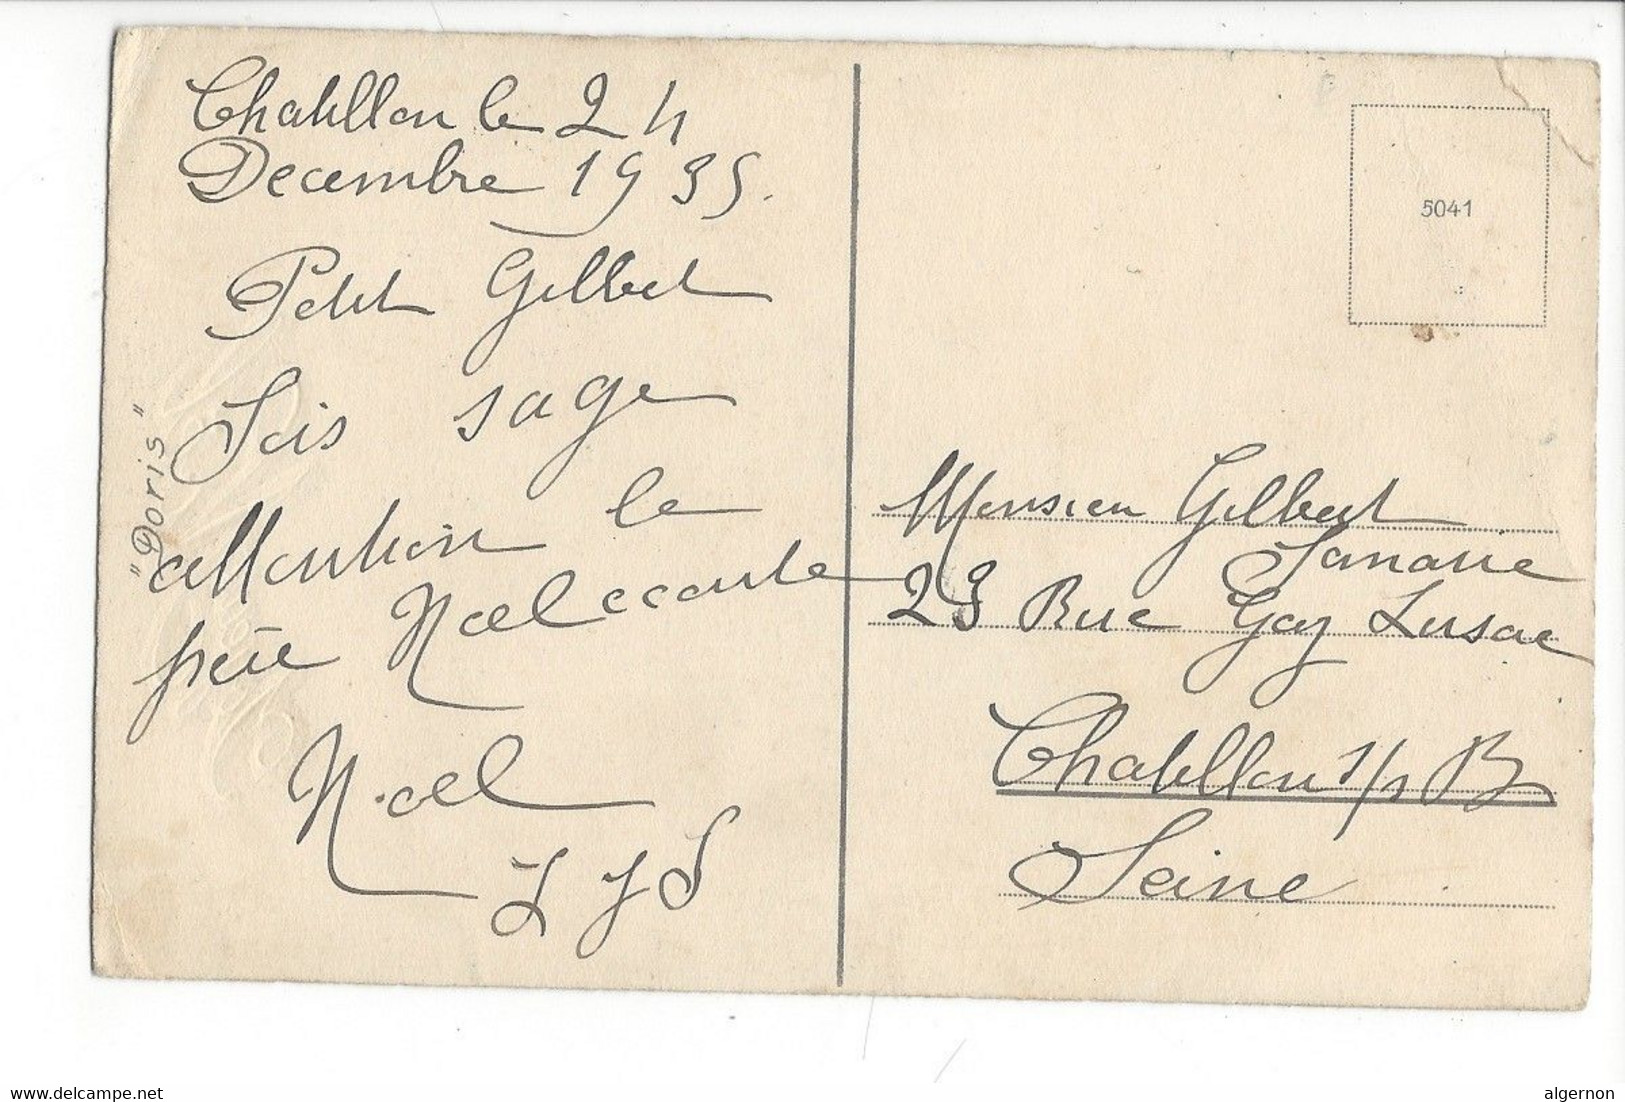 Chatillon le 24
Decembre 1935.
Petit Gilbert
Sois sage
attention le
père Noel ecoute
Noel
"Doris"
5041
Monsieu Gilbert
23 Rue Gay Lusac
Chatillon s/s B
Seine
delcampe.net
algernon